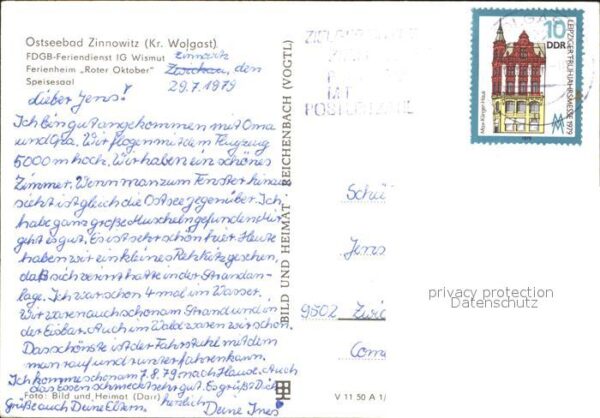 Ostseebad Zinnowitz (Kr. Wolgast)
FDGB-Feriendienst IG Wismut
Ferienheim „Roter Oktober"
Speisesaal
Zinnowitz
Zwickau, den
29.7.1979
Lieber Jens!
Ich bin gut angekommen mit Oma
und Opa. Wir flogen mit dem Flugzeug
5000 m hoch. Wir haben ein schönes
Zimmer. Wenn man zum Fenster hinaus
sieht ist gleich die Ostsee gegenüber. Ich
habe ganz große Muscheln gefunden. Mir
geht es gut. Es ist sehr schön hier. Heute
haben wir ein kleines Rehkitz gesehen,
daß sich verirrt hatte in der Strandan-
lage. Ich war schon 4 mal im Wasser.
Wir waren auch schon am Strand und in
der Eisbar. Auch im Wald waren wir schon.
Das schönste ist der Fahrstuhl mit dem
man rauf und runterfahren kann.
Ich komme schon am 7.8.79 nach Hause. Auch
das Essen schmeckt sehr gut. Es grüßt Dich
Foto: Bild und Heimat (Darr)
herzlich
Grüße auch Deine Eltern.
Deine Ines
BILD UND HEIMAT REICHENBACH (VOGTL)
MIT
10
DDR
LEIPZIGER FRÜHJAHRSMESSE 1979
Max-Klinger-Haus
Schül
Jens
9502 Zwic
V 11 50 A 1/
privacy protection
Datenschutz